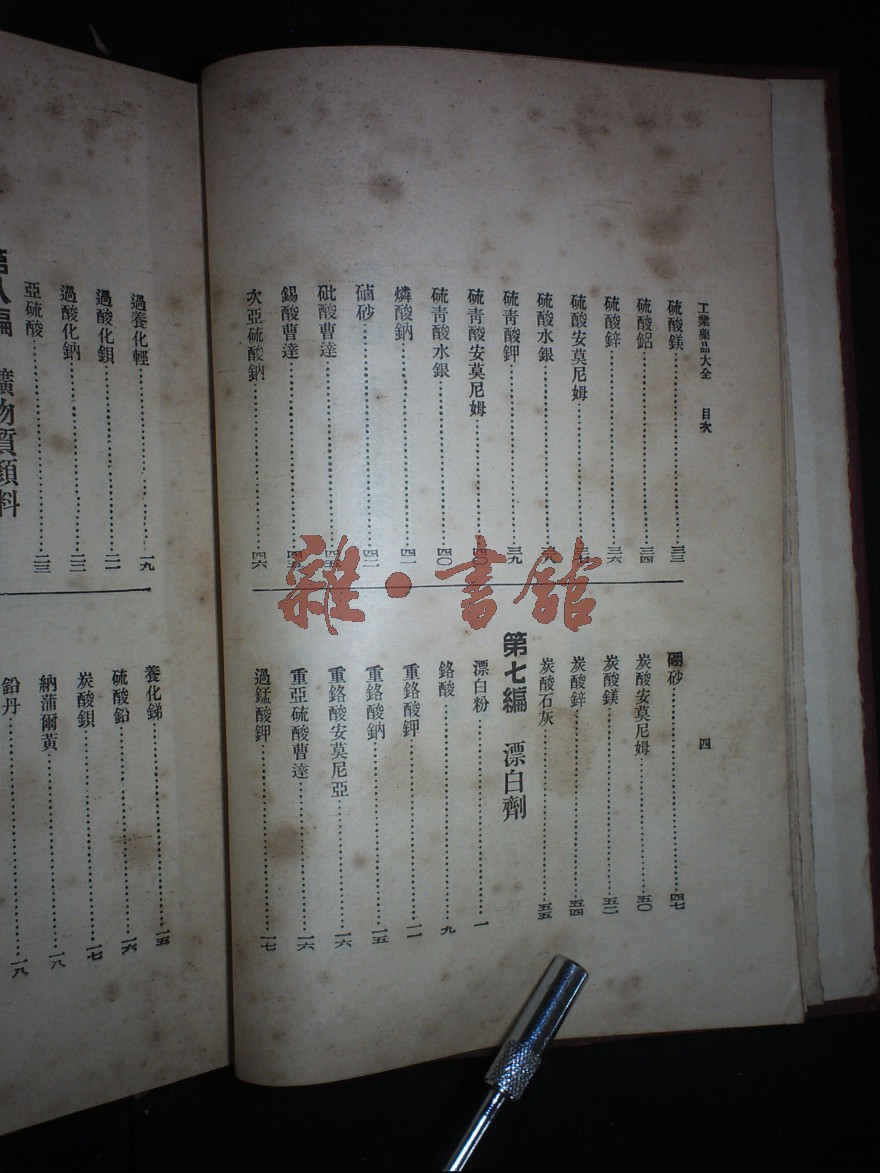 工業藥品大全　目次
四
硫酸鎂……三三
硫酸鋁……三四
硫酸鋅……三六
硫酸安莫尼姆……三七
硫酸水銀……三八
硫青酸鉀……三九
硫青酸安莫尼姆……四〇
硫青酸水銀……四〇
燐酸鈉……四一
硇砂……四二
砒酸曹達……四五
錫酸曹達……四五
次亞硫酸鈉……四六
硼砂……四七
炭酸安莫尼姆……五〇
炭酸鎂……五二
炭酸鋅……五四
炭酸石灰……五五
第七編　漂白劑
漂白粉……一
鉻酸……九
重鉻酸鉀……一一
重鉻酸鈉……一五
重鉻酸安莫尼亞……一六
重亞硫酸曹達……一六
過錳酸鉀……一七
過養化輕……一九
過酸化鋇……二一
過酸化鈉……二二
亞硫酸……二三
第八編　礦物質顏料
養化銻……一五
硫酸鉛……一六
炭酸鋇……一七
納蒲爾黃……一八
鉛丹……一八
雜·書館